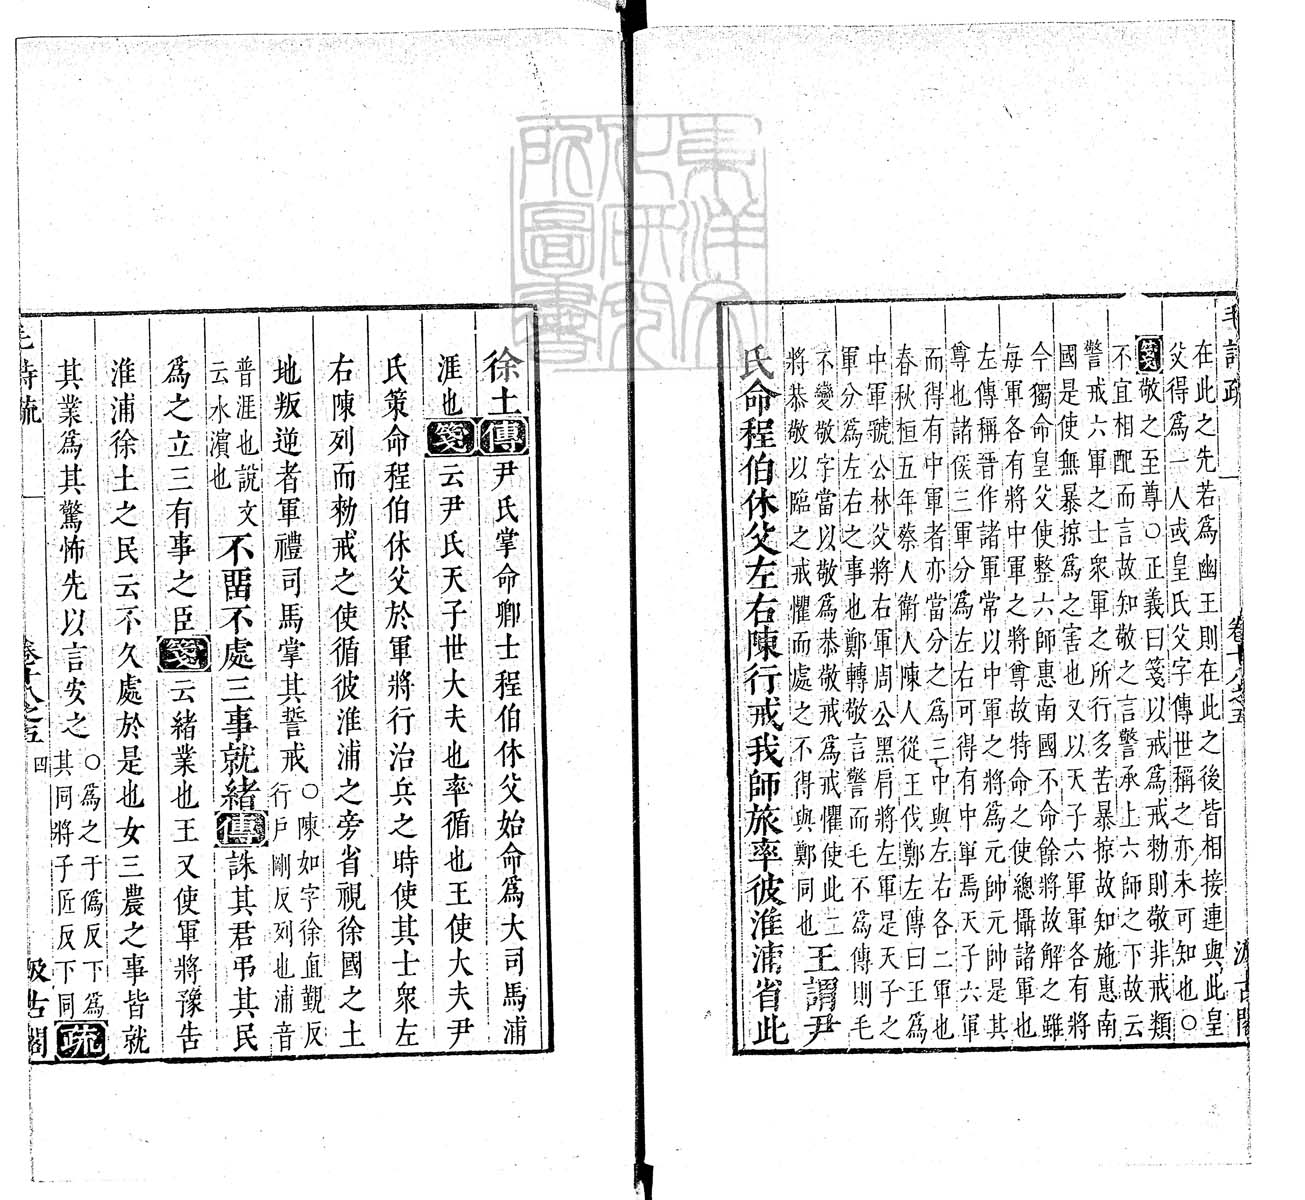 毛詩疏
卷十八之五
汲古閣
在此之先若爲幽王則在此之後皆相接連與此皇
父得爲一人或皇氏父字傳世稱之亦未可知也〇
箋敬之至尊〇正義曰箋以戒爲戒勑則敬非戒類
不宜相配而言故知敬之言警承上六師之下故云
警戒六軍之士衆軍之所行多苦暴掠故知施惠南
國是使無暴掠爲之害也又以天子六軍軍各有將
今獨命皇父使整六師惠南國不命餘將故解之雖
每軍各有將中軍之將尊故特命之使總攝諸軍也
左傳稱晉作諸軍常以中軍之將爲元帥元帥是其
尊也諸侯三軍分爲左右可得有中軍焉天子六軍
而得有中軍者亦當分之爲三中與左右各二軍也
春秋桓五年蔡人衛人陳人從王伐鄭左傳曰王爲
中軍虢公林父將右軍周公黑肩將左軍是天子之
軍分爲左右之事也鄭轉敬言警而毛不爲傳則毛
不變敬字當以敬爲恭敬戒爲戒懼使此二
將恭敬以臨之戒懼而處之不得與鄭同也
王謂尹
氏命程伯休父左右陳行戒我師旅率彼淮浦省此
徐土傳尹氏掌命卿士程伯休父始命爲大司馬浦
涯也箋云尹氏天子世大夫也率循也王使大夫尹
氏策命程伯休父於軍將行治兵之時使其士衆左
右陳列而勑戒之使循彼淮浦之旁省視徐國之土
地叛逆者軍禮司馬掌其誓戒〇陳如字徐直覲反
行戶剛反列也浦音
普涯也說文
云水濱也
不畱不處三事就緒傳誅其君弔其民
爲之立三有事之臣箋云緒業也王又使軍將豫告
淮浦徐土之民云不久處於是也女三農之事皆就
其業爲其驚怖先以言安之〇爲之于僞反下爲
其同將子匠反下同
疏
毛詩疏
卷十八之五
四
汲古閣